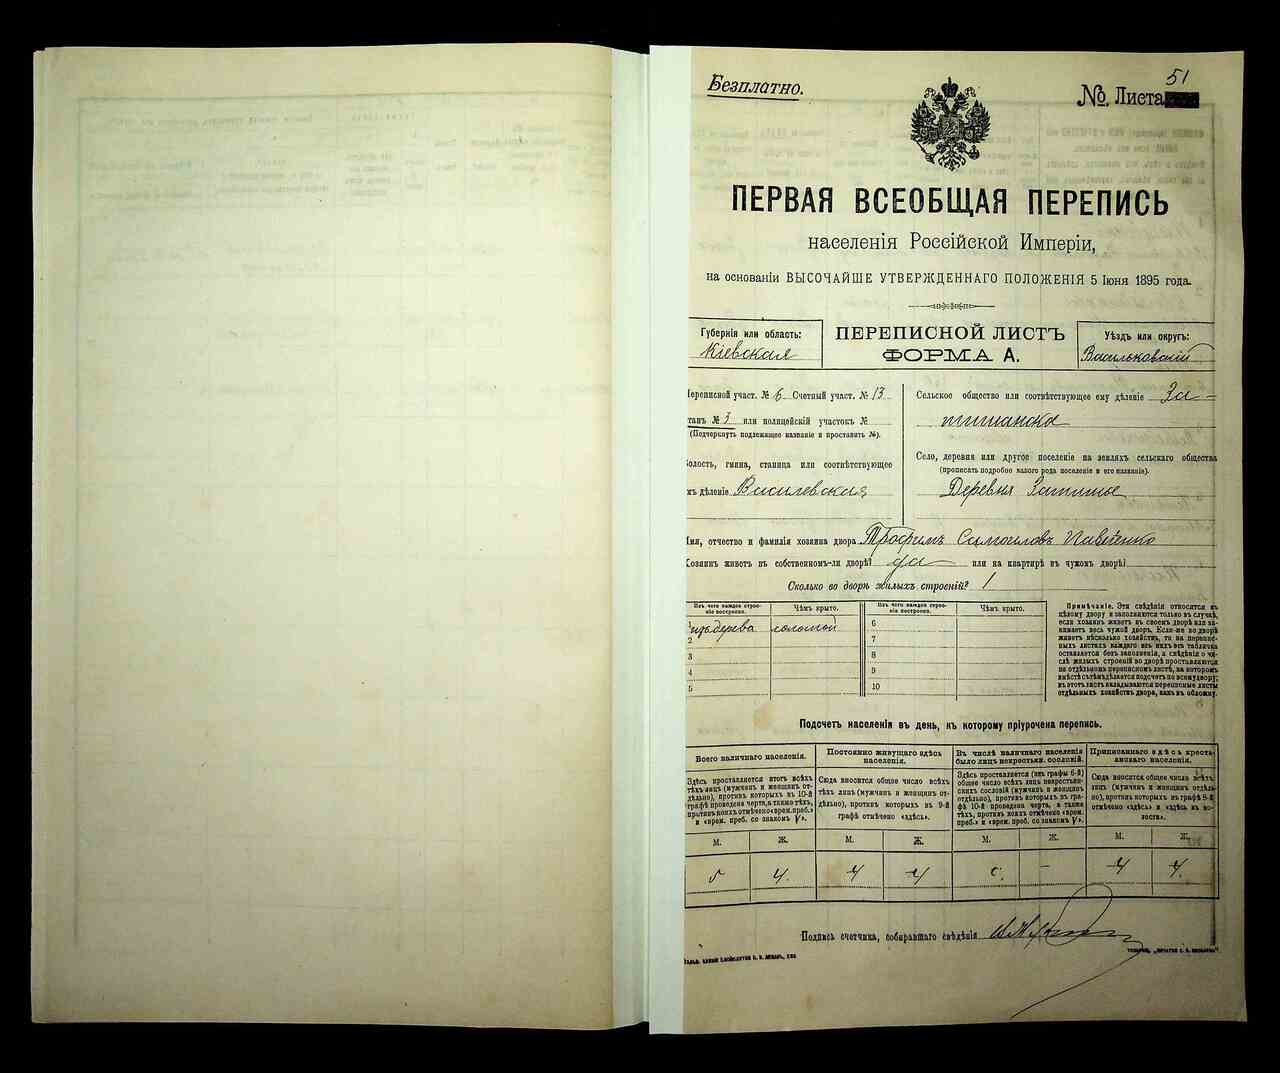 Безплатно.
51
№ Листа
ПЕРВАЯ ВСЕОБЩАЯ ПЕРЕПИСЬ
населенія Россійской Имперіи,
на основаніи ВЫСОЧАЙШЕ УТВЕРЖДЕННАГО ПОЛОЖЕНІЯ 5 Іюня 1895 года.
Губернія или область:
Кіевская
ПЕРЕПИСНОЙ ЛИСТЪ
ФОРМА А.
Уѣздъ или округъ:
Васильковскій
Переписной участ. № 6 Счетный участ. № 13
танъ № 3 или полицейскій участокъ №
(Подчеркнуть подлежащее названіе и проставить №).
Волость, гмина, станица или соотвѣтствующее
имъ дѣленіе Василевская
Сельское общество или соотвѣтствующее ему дѣленіе За-
тишанска
Село, деревня или другое поселеніе на земляхъ сельскаго общества
(прописать подробно какого рода поселеніе и его названіе).
Деревня Затишье
Имя, отчество и фамилія хозяина двора Трофимъ Самоиловъ
Хозяинъ живетъ въ собственномъ-ли дворѣ? да или на квартирѣ въ чужомъ дворѣ?
Сколько во дворѣ жилыхъ строеній? 1
Изъ чего каждое строеніе построено.
Чѣмъ крыто.
Изъ чего каждое строеніе построено.
Чѣмъ крыто.
1 изъ дерева соломой
2
3
4
5
6
7
8
9
10
Примѣчаніе. Эти свѣдѣнія относятся къ
цѣлому двору и заполняются только въ случаѣ,
если хозяинъ живетъ въ своемъ дворѣ или занимаетъ
весь чужой дворъ. Если-же во дворѣ
живетъ нѣсколько хозяйствъ, то на переписныхъ
листахъ каждаго изъ нихъ эта табличка
оставляется безъ заполненія, а свѣдѣнія о числѣ
жилыхъ строеній во дворѣ проставляются
на отдѣльномъ переписномъ листѣ, на которомъ
вмѣстѣ съ тѣмъ дѣлается подсчетъ по всему двору;
въ этотъ листъ вкладываются переписные листы
отдѣльныхъ хозяйствъ двора, какъ въ обложку.
Подсчетъ населенія въ день, къ которому пріурочена перепись.
Всего наличнаго населенія.
Здѣсь проставляется итогъ всѣхъ
тѣхъ лицъ (мужчинъ и женщинъ отдѣльно),
противъ которыхъ въ 10-й
графѣ проведена черта, а также тѣхъ,
противъ коихъ отмѣчено «врем. преб.»
и «врем. преб. со знакомъ V».
Постоянно живущаго здѣсь
населенія.
Сюда вносится общее число всѣхъ
тѣхъ лицъ (мужчинъ и женщинъ отдѣльно),
противъ которыхъ въ 9-й
графѣ отмѣчено «здѣсь».
Въ числѣ наличнаго населенія
было лицъ некрестьян. сословій.
Здѣсь проставляется (изъ графы 6-й)
общее число всѣхъ лицъ некрестьянскихъ
сословій (мужчинъ и женщинъ
отдѣльно), противъ которыхъ въ графѣ
10-й проведена черта, а также
тѣхъ, противъ коихъ отмѣчено «врем.
преб.» и «врем. преб. со знакомъ V».
Приписаннаго здѣсь крестьянскаго
населенія.
Сюда вносится общее число всѣхъ
лицъ (мужчинъ и женщинъ отдѣльно),
противъ которыхъ въ графѣ 8-й
отмѣчено «здѣсь» и «здѣсь въ волости».
М. Ж. М. Ж. М. Ж. М. Ж.
5 4. 4 4 – 4 4.
Подпись счетчика, собиравшаго свѣдѣнія